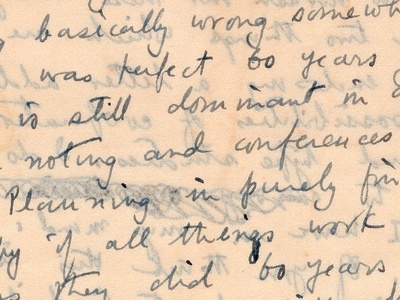 basically wrong somewh
was perfect 60 years
is still dominant in
noting and conferences
Planning in purely fin
by if all things work
as they did 60 years